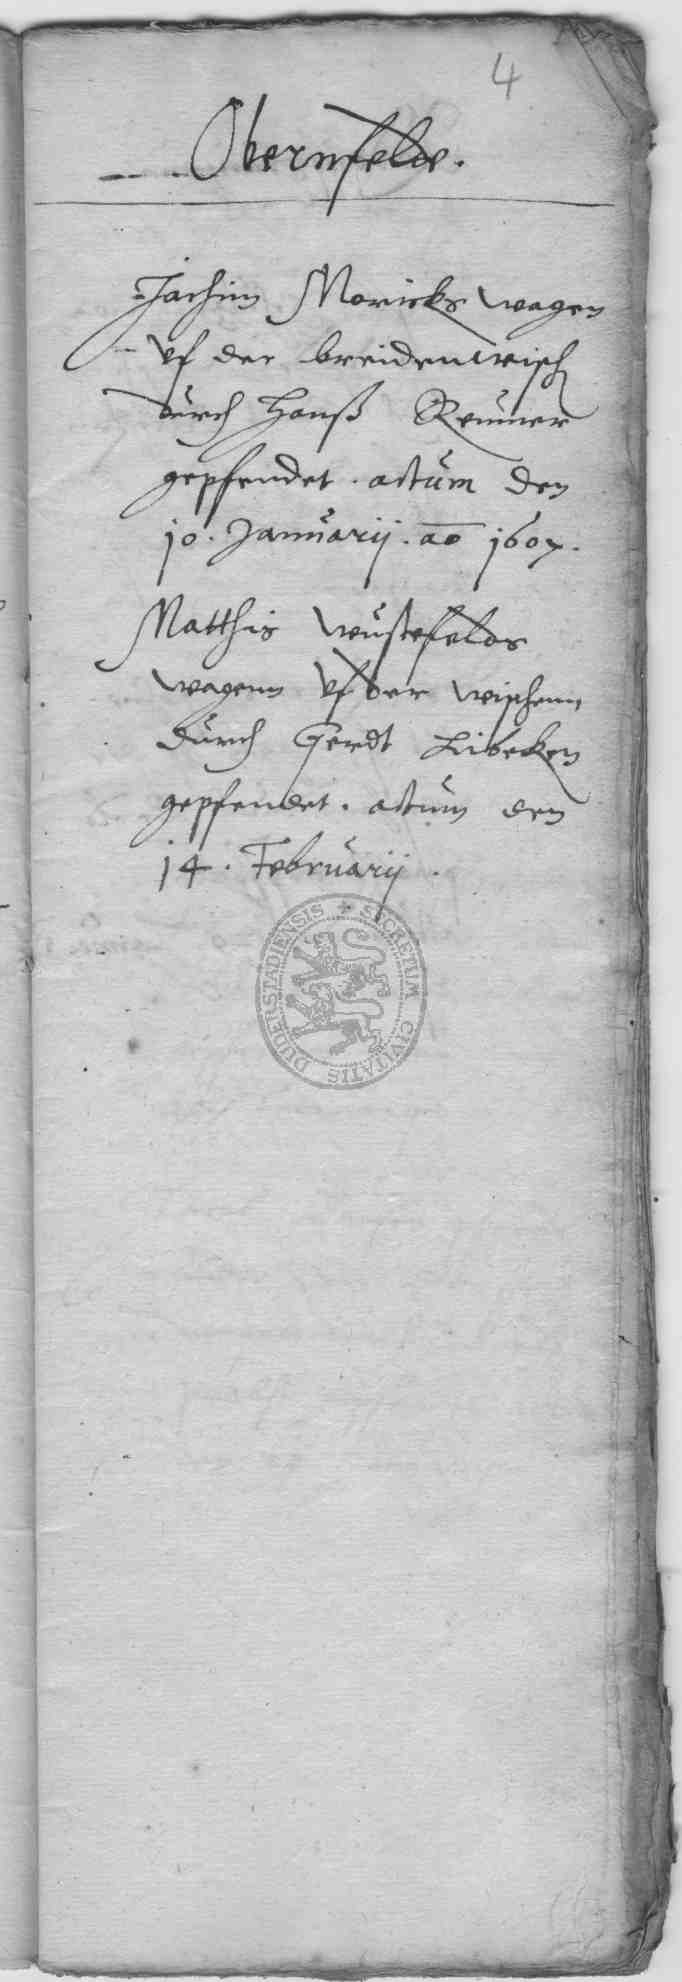 4
Obernfelde.
Jachim Moricks wagen
uf der breidenwisch
durch Hanß Reumer
gepfendet. actum den
10. Januarij. ao 1607.
Matthis Wustefelds
wagenn uf der wischenn
durch Gerdt Libeken
gepfendet. actum den
14. Februarij.
SECRETUM CIVITATIS DUDERSTADIENSIS